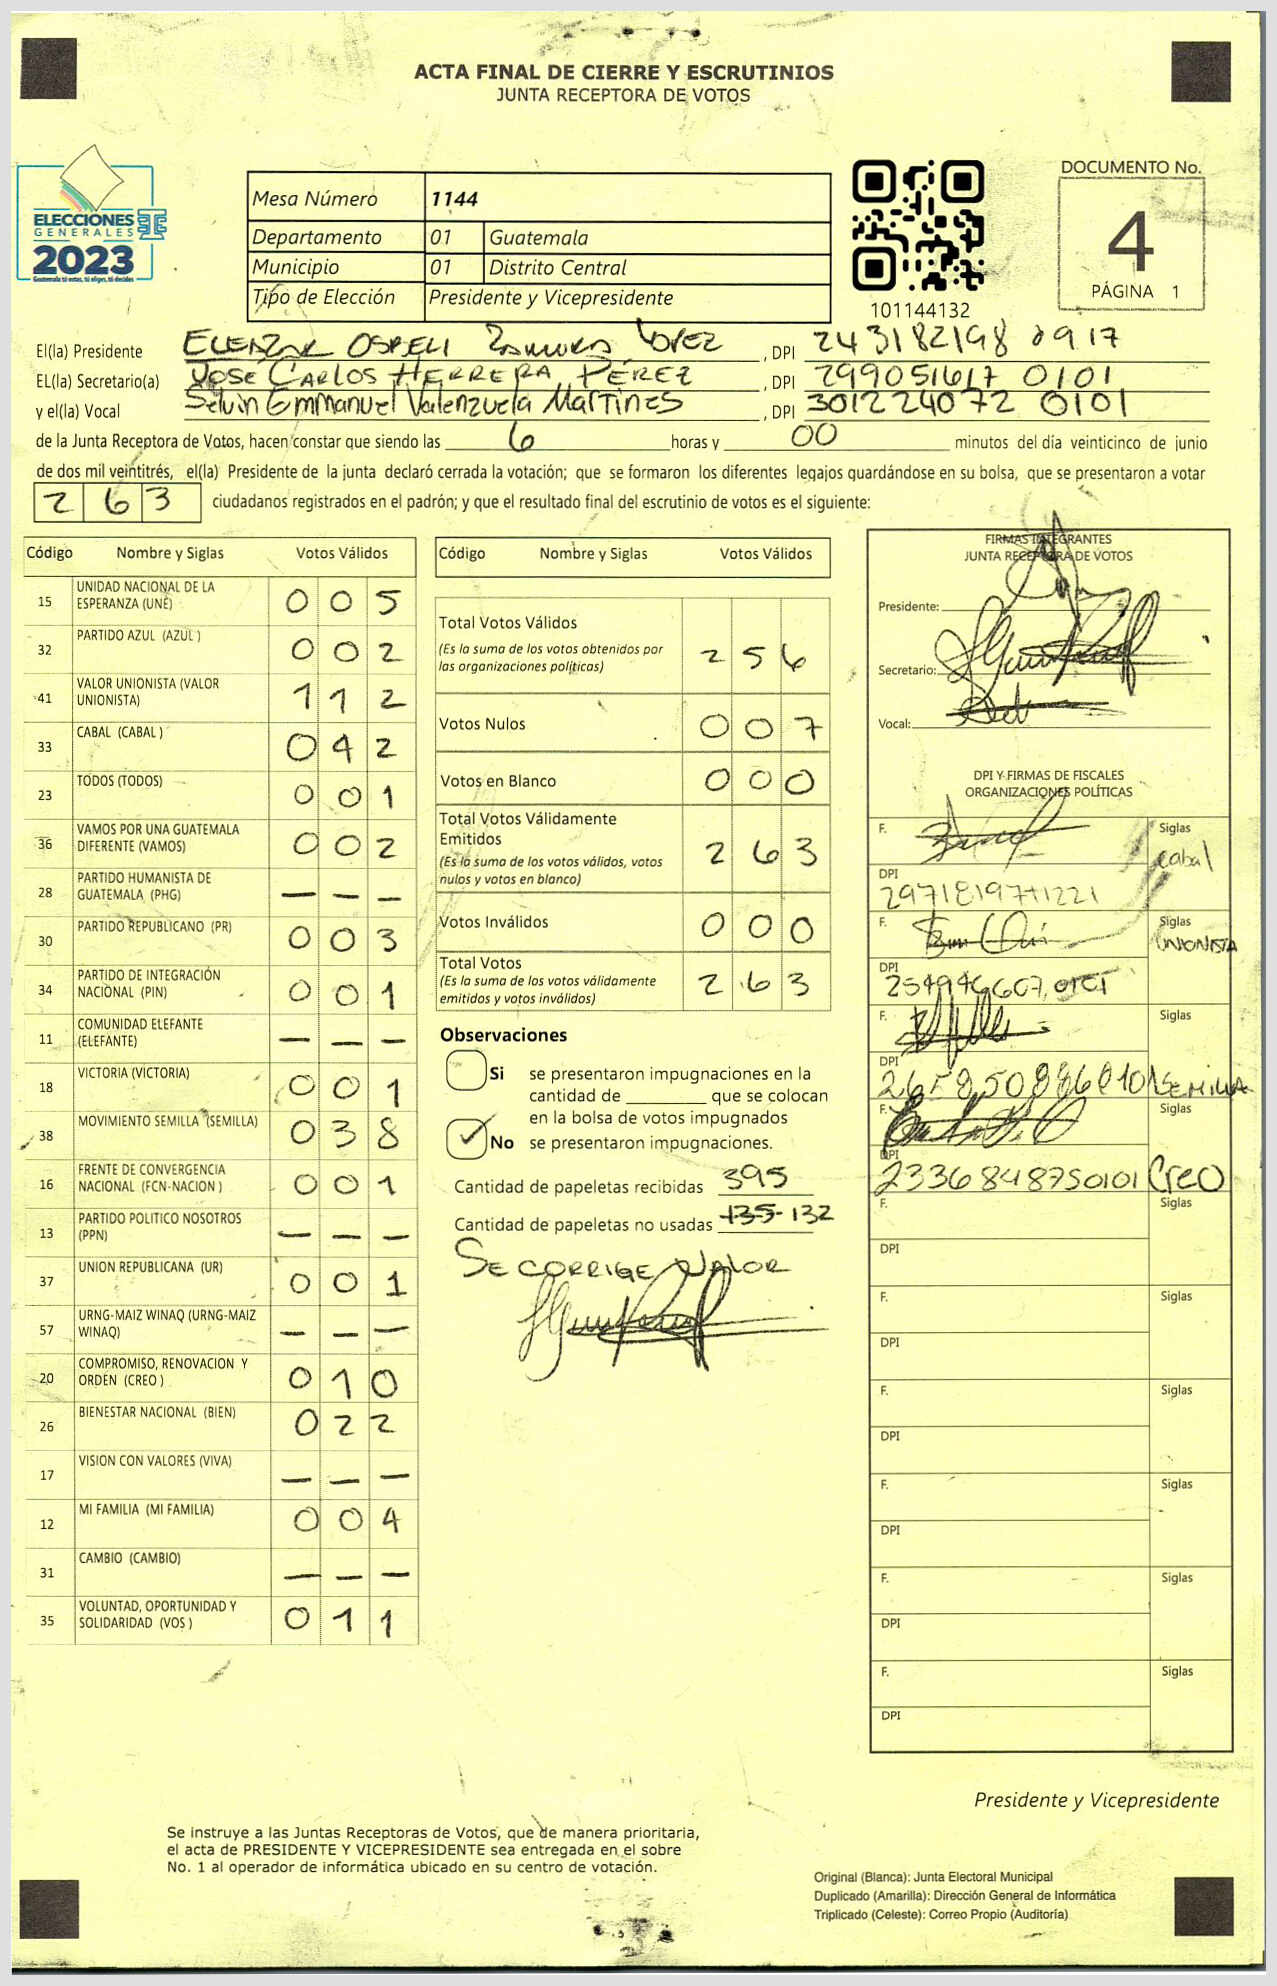 ACTA FINAL DE CIERRE Y ESCRUTINIOS
JUNTA RECEPTORA DE VOTOS
ELECCIONES
GENERALES
2023
Guatemala tú estas, tú eliges, tú decides
Mesa Número 1144
Departamento 01 Guatemala
Municipio 01 Distrito Central
Tipo de Elección Presidente y Vicepresidente
101144132
DOCUMENTO No.
4
PÁGINA 1
El(la) Presidente López , DPI 243182198 0917
EL(la) Secretario(a) José Carlos Herrera Pérez , DPI 299051617 0101
y el(la) Vocal Selvin Emmanuel Valenzuela Martines , DPI 301224072 0101
de la Junta Receptora de Votos, hacen constar que siendo las 6 horas y 00 minutos del día veinticinco de junio
de dos mil veintitrés, el(la) Presidente de la junta declaró cerrada la votación; que se formaron los diferentes legajos guardándose en su bolsa, que se presentaron a votar
263 ciudadanos registrados en el padrón; y que el resultado final del escrutinio de votos es el siguiente:
Código Nombre y Siglas Votos Válidos
15 UNIDAD NACIONAL DE LA ESPERANZA (UNE) 005
32 PARTIDO AZUL (AZUL ) 002
41 VALOR UNIONISTA (VALOR UNIONISTA) 112
33 CABAL (CABAL ) 042
23 TODOS (TODOS) 001
36 VAMOS POR UNA GUATEMALA DIFERENTE (VAMOS) 002
28 PARTIDO HUMANISTA DE GUATEMALA (PHG) — — —
30 PARTIDO REPUBLICANO (PR) 003
34 PARTIDO DE INTEGRACIÓN NACIONAL (PIN) 001
11 COMUNIDAD ELEFANTE (ELEFANTE) — — —
18 VICTORIA (VICTORIA) 001
38 MOVIMIENTO SEMILLA (SEMILLA) 038
16 FRENTE DE CONVERGENCIA NACIONAL (FCN-NACION ) 001
13 PARTIDO POLITICO NOSOTROS (PPN) — — —
37 UNION REPUBLICANA (UR) 001
57 URNG-MAIZ WINAQ (URNG-MAIZ WINAQ) — — —
20 COMPROMISO, RENOVACION Y ORDEN (CREO ) 010
26 BIENESTAR NACIONAL (BIEN) 022
17 VISION CON VALORES (VIVA) — — —
12 MI FAMILIA (MI FAMILIA) 004
31 CAMBIO (CAMBIO) — — —
35 VOLUNTAD, OPORTUNIDAD Y SOLIDARIDAD (VOS ) 011
Código Nombre y Siglas Votos Válidos
Total Votos Válidos 256
(Es la suma de los votos obtenidos por
las organizaciones políticas)
Votos Nulos 007
Votos en Blanco 000
Total Votos Válidamente
Emitidos 263
(Es la suma de los votos válidos, votos
nulos y votos en blanco)
Votos Inválidos 000
Total Votos 263
(Es la suma de los votos válidamente
emitidos y votos inválidos)
Observaciones
Si se presentaron impugnaciones en la
cantidad de ________ que se colocan
en la bolsa de votos impugnados
No se presentaron impugnaciones.
Cantidad de papeletas recibidas 395
Cantidad de papeletas no usadas 135 132
Se corrige valor
FIRMAS INTEGRANTES
JUNTA RECEPTORA DE VOTOS
Presidente:
Secretario:
Vocal:
DPI Y FIRMAS DE FISCALES
ORGANIZACIONES POLÍTICAS
F. Siglas
cabal
DPI
F. Siglas
UNIONISTA
DPI
F. Siglas
DPI
SEMILLA
F. Siglas
DPI
2336848750101 Creo
F. Siglas
DPI
F. Siglas
DPI
F. Siglas
DPI
F. Siglas
DPI
F. Siglas
DPI
F. Siglas
DPI
Presidente y Vicepresidente
Se instruye a las Juntas Receptoras de Votos, que de manera prioritaria,
el acta de PRESIDENTE Y VICEPRESIDENTE sea entregada en el sobre
No. 1 al operador de informática ubicado en su centro de votación.
Original (Blanca): Junta Electoral Municipal
Duplicado (Amarilla): Dirección General de Informática
Triplicado (Celeste): Correo Propio (Auditoría)